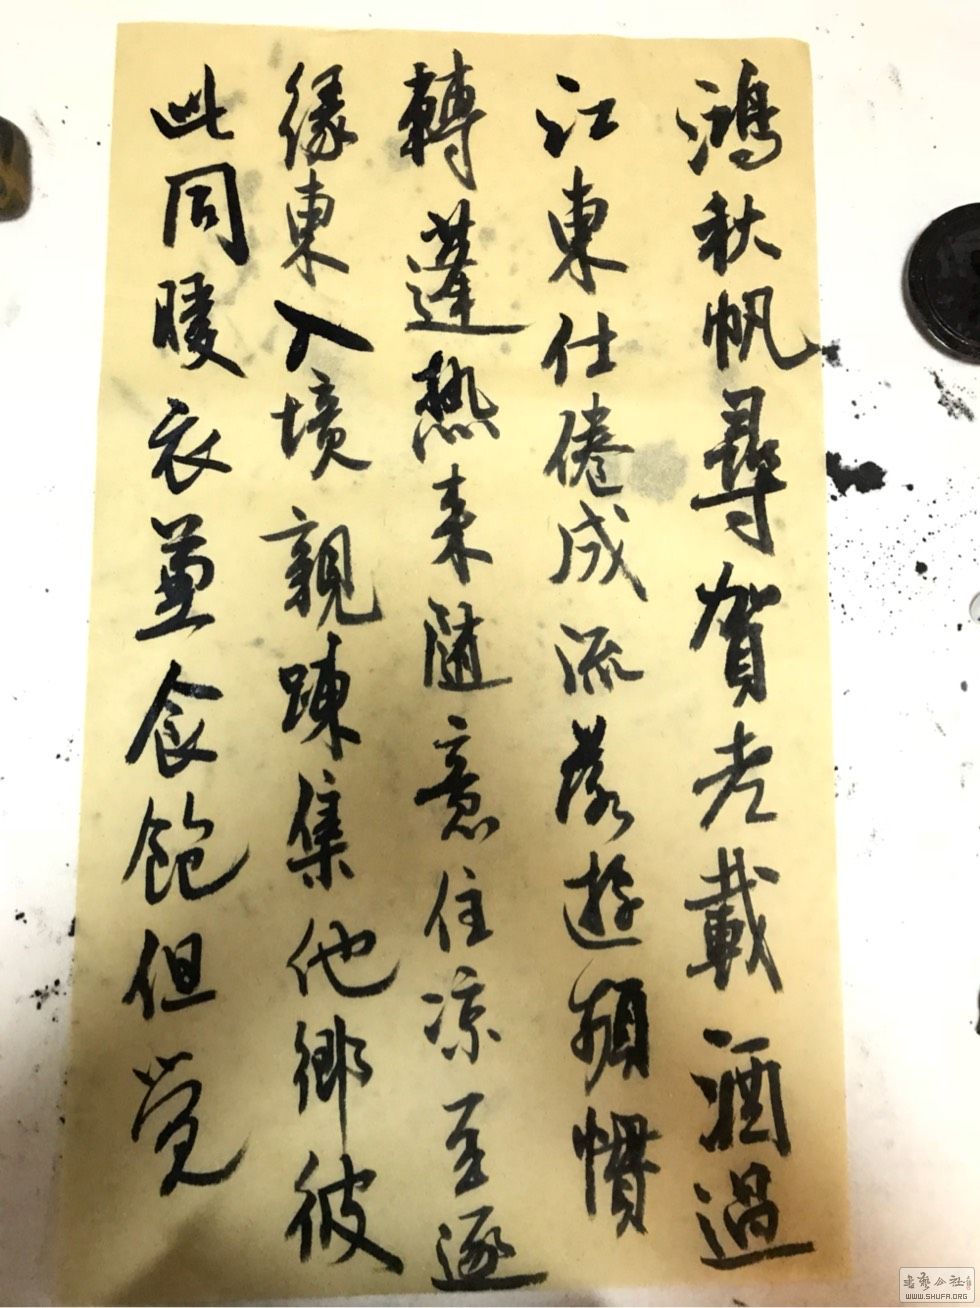 鴻秋帆尋賀老載酒過
江東仕倦成流落遊頻慣
轉蓬熱来隨意住凉至逐
緣東入境親踈集他鄉彼
此同暖衣蓋食飽但覺
書藝公社
WWW.SHUFA.ORG